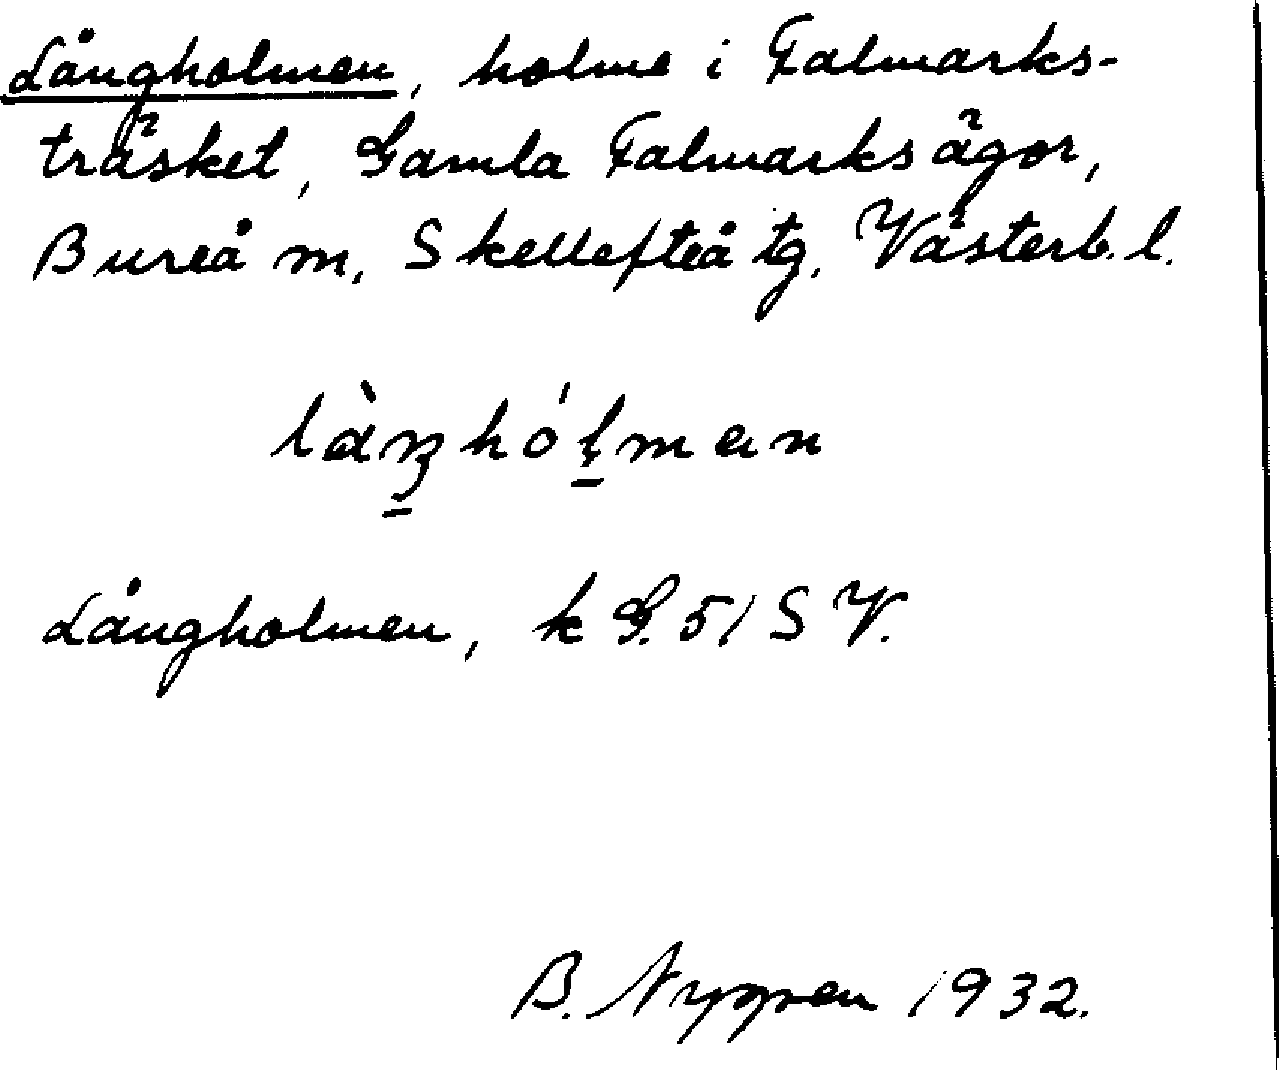 Långholmen, holme i Falmarks-
träsket, Gamla Falmarks ägor,
Bureå m, Skellefteå tg. Västerb. l.
làŋhól̠man
Långholmen, k G. 51 SV.
B. Nygren 1932.